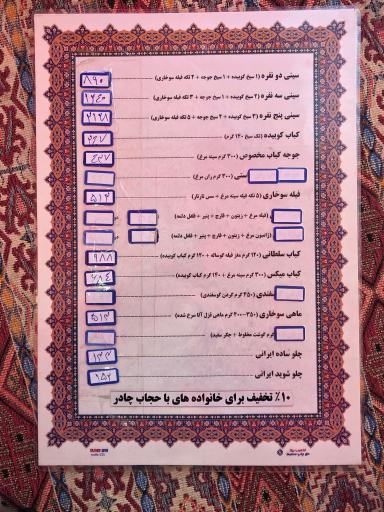 سینی دو نفره (۱ سیخ کوبیده + ۱ سیخ جوجه + ۲ تکه فیله سوخاری) ۸۹۰
سینی سه نفره (۲ سیخ کوبیده + ۱ سیخ جوجه + ۳ تکه فیله سوخاری) ۱۲۶۰
سینی پنج نفره (۳ سیخ کوبیده + ۲ سیخ جوجه + ۵ تکه فیله سوخاری) ۲۱۲۸
کباب کوبیده (تک سیخ ۱۲۰ گرم) ۲۶۷
جوجه کباب مخصوص (۳۰۰ گرم سینه مرغ) ۴۶۷
سنتی (۳۰۰ گرم ران مرغ)
فیله سوخاری (۵ تکه فیله مرغ + سس تارتار) ۵۱۲
(فیله مرغ + زیتون + قارچ + پنیر + فلفل دلمه)
(ژامبون مرغ + زیتون + قارچ + پنیر + فلفل دلمه)
کباب سلطانی (۱۲۰ گرم مغز فیله گوساله + ۱۲۰ گرم کباب کوبیده) ۹۸۸
کباب میکس (۳۰۰ گرم سینه مرغ + ۱۲۰ گرم کباب کوبیده) ۶۸۴
(۳۵۰ گرم گردن گوسفندی)
ماهی سوخاری (۳۵۰-۳۰۰ گرم ماهی قزل آلا سرخ شده) ۵۱۳
گرم گوشت مخلوط + جگر سفید)
چلو ساده ایرانی ۱۳۴
چلو شوید ایرانی ۱۵۲
۱۰٪ تخفیف برای خانواده های با حجاب چادر